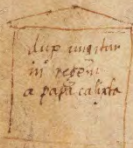 dux cingitur
in reteni
a papa calixto